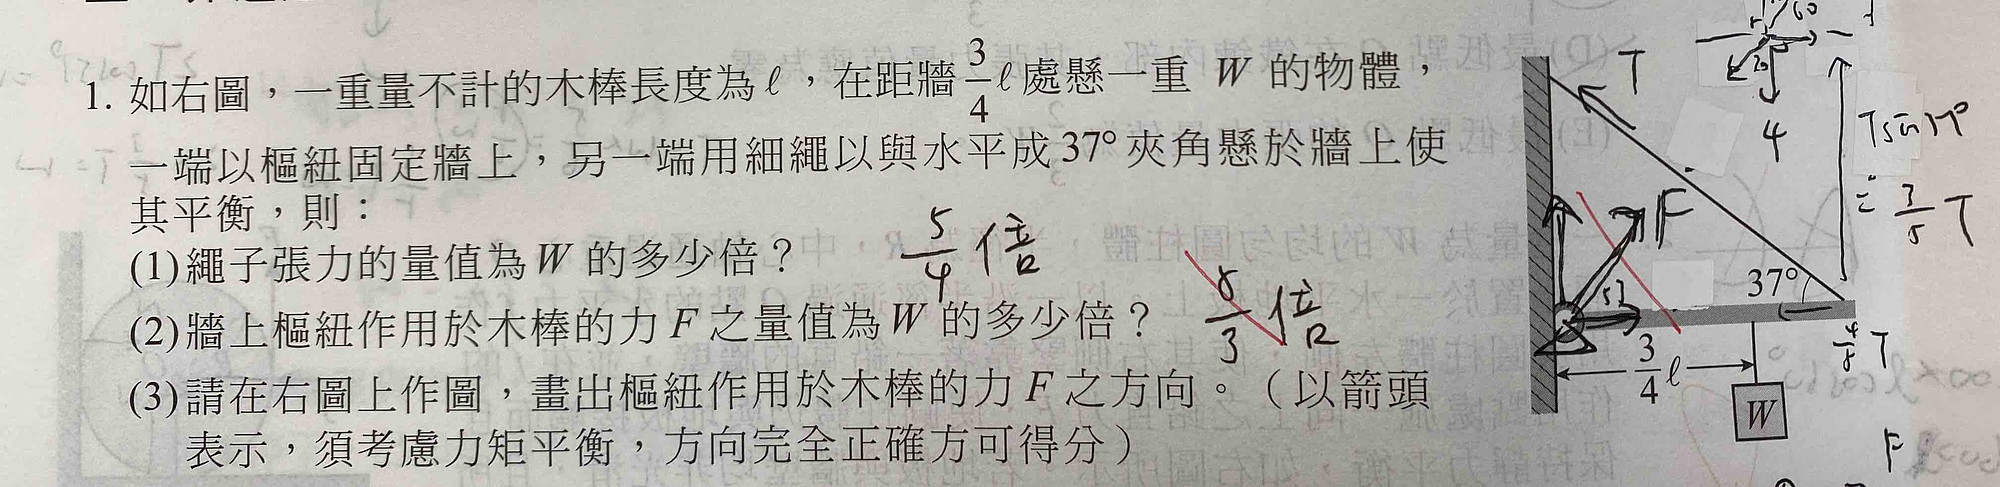 1. 如右圖，一重量不計的木棒長度為ℓ，在距牆3/4ℓ處懸一重 W 的物體，
一端以樞紐固定牆上，另一端用細繩以與水平成37°夾角懸於牆上使
其平衡，則：
(1)繩子張力的量值為W 的多少倍？ 5/4倍
(2)牆上樞紐作用於木棒的力F 之量值為W 的多少倍？ 5/3倍
(3)請在右圖上作圖，畫出樞紐作用於木棒的力F 之方向。（以箭頭
表示，須考慮力矩平衡，方向完全正確方可得分）
T
4
F
3/5 T
37°
4/5 T
3/4ℓ
W
F